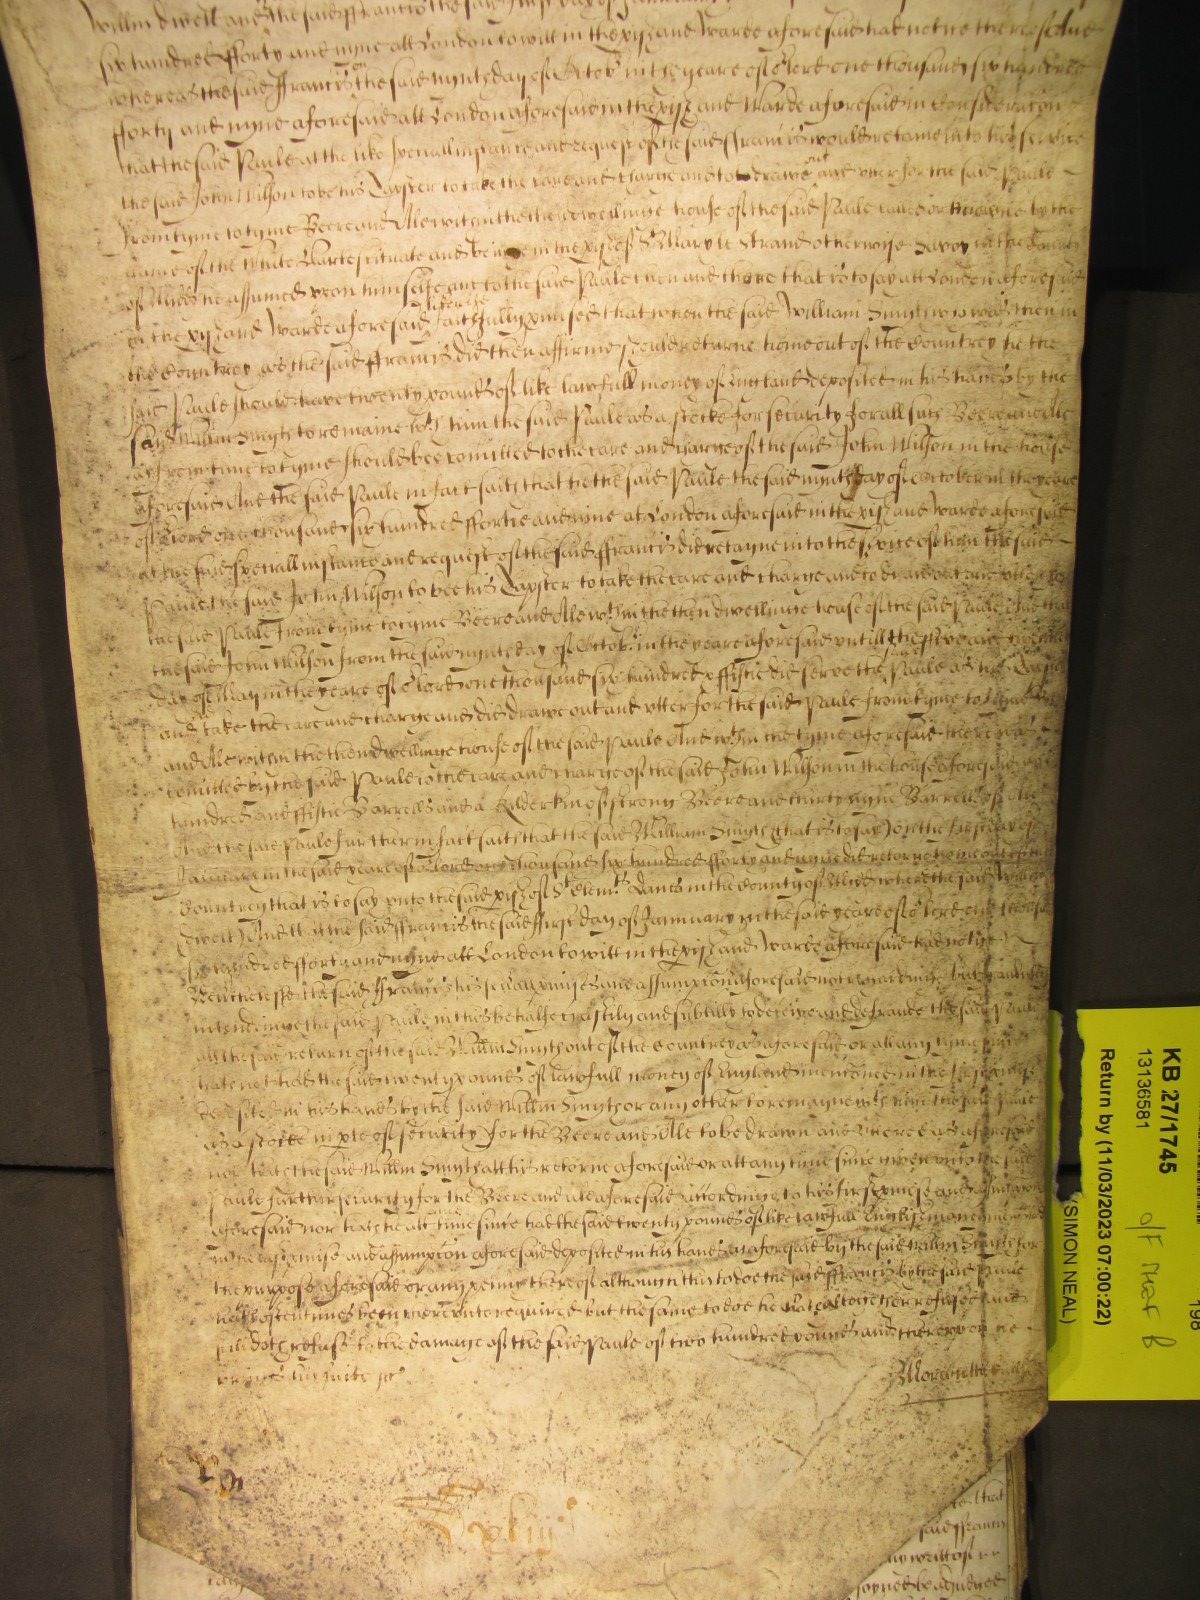 Willm dwell and the said Francis the said first day of January
six hundred fforty and nyne att London to witt in the pish and Warde aforesaid had notice thereof And
whereas the said ffrancis on the said nynth day of Octob in the yeare of o Lord one thousand six hundred
fforty and nyne aforesaid att London aforesaid in the pish and Warde aforesaid in consideracon
that the said Paule at the like speciall instance and request of the said ffrancis would retaine into his service
the said John Wilson to be his Tapster to take the care and charge and to drawe out and utter for the said Paule
from tyme to tyme Beere and Ale within the then dwellinge house of the said Paule called or knowne by the
name of the White Harte scituate and beinge in the pish of St Mary le Strand otherwise Savoy in the County
of Midds he assumed upon himselfe and to the said Paule then and there that is to say att London aforesaid
in the pish and Warde aforesaid likewise faithfully pmised that when the said William Smyth who was then in
the Countrey as the said ffrancis did then affirme should returne home out of the Countrey he the
said Paule should have twenty pounds of like lawfull money of England deposited in his hands by the
said Willm Smyth to remaine wth him the said Paule as a stocke for security for all such Beere and Ale
as from time to tyme should bee comitted to the care and charge of the said John Wilson in the house
aforesaid And the said Paule in fact saith that he the said Paule the said nynth day of October in the yeare
of o Lord one thousand six hundred ffortie and nyne at London aforesaid in the pish and Warde aforesaid
at the said speciall instance and request of the said ffrancis did retayne into the service of him the said
Paule the said John Wilson to bee his Tapster to take the care and charge and to drawe out and utter for
the said Paule from tyme to tyme Beere and Ale wthin the then dwellinge house of the said Paule And that
the said John Wilson from the said nynth day of Octob in the yeare aforesaid untill the
day of May in the yeare of o Lord one thousand six hundred & ffiftie did serve the said Paule as his Tapster
and take the care and charge and did drawe out and utter for the said Paule from tyme to tyme Beere
and Ale within the then dwellinge house of the said Paule And wthin the tyme aforesaid there was
comitted by the said Paule to the care and charge of the said John Wilson in the house aforesaid
hundred and ffiftie Barrells and a Kilderkin of strong Beere and thirty nyne Barrells of Ale
And the said Paule further in fact saith that the said William Smyth (that is to say) on the first day of
January in the said yeare of o Lord one thousand six hundred fforty and nyne did returne home out of the
Countrey that is to say unto the said pish of St Clemts Danes in the County of Midds where the said Willm
dwelt) And that the said ffrancis the said ffirst day of Januuary in the said yeare of o Lord one thousand
six hundred fforty and nyne att London to witt in the pish and Warde aforesaid had notice
Neverthelesse the said ffrancis his sevall pmises and assumpcons aforesaid not regardinge but
intendinge the said Paule in this behalfe craftily and subtilly to deceive and defraude the said Paule
att the said return of the said Willm Smyth out of the Countrey as aforesaid or att any tyme since
hath not had the said twenty pounds of lawfull money of England menconed in the first pmise
deposited in his hands by the said Willm Smyth or any other to remayne wth him the said Paule
as a stocke in pte of security for the Beere and Ale to be drawn and uttered as aforesaid
nor hath the said Willm Smyth att his returne aforesaid or att any time since given unto the said
Paule further security for the Beere and Ale aforesaid accordinge to his first pmise and assumpcon
aforesaid nor hath he att time since had the said twenty pounds of like lawfull English money menconed
in the last pmise and assumpcon aforesaid deposited in his hands as aforesaid by the said Willm Smyth for
the purpose aforesaid or any penny thereof although this to doe the said ffrancis by the said Paule
hath oftentimes been thereunto required but the same to doe he hath altogether refused and
still doth refuse to the damage of the said Paule of two hundred pounds and thereupon he
brings his suite &c
xliij
KB 27/1745
13136581
Return by (11/03/2023 07:00:22)
(SIMON NEAL)
198
of Mat B
said ffrancis